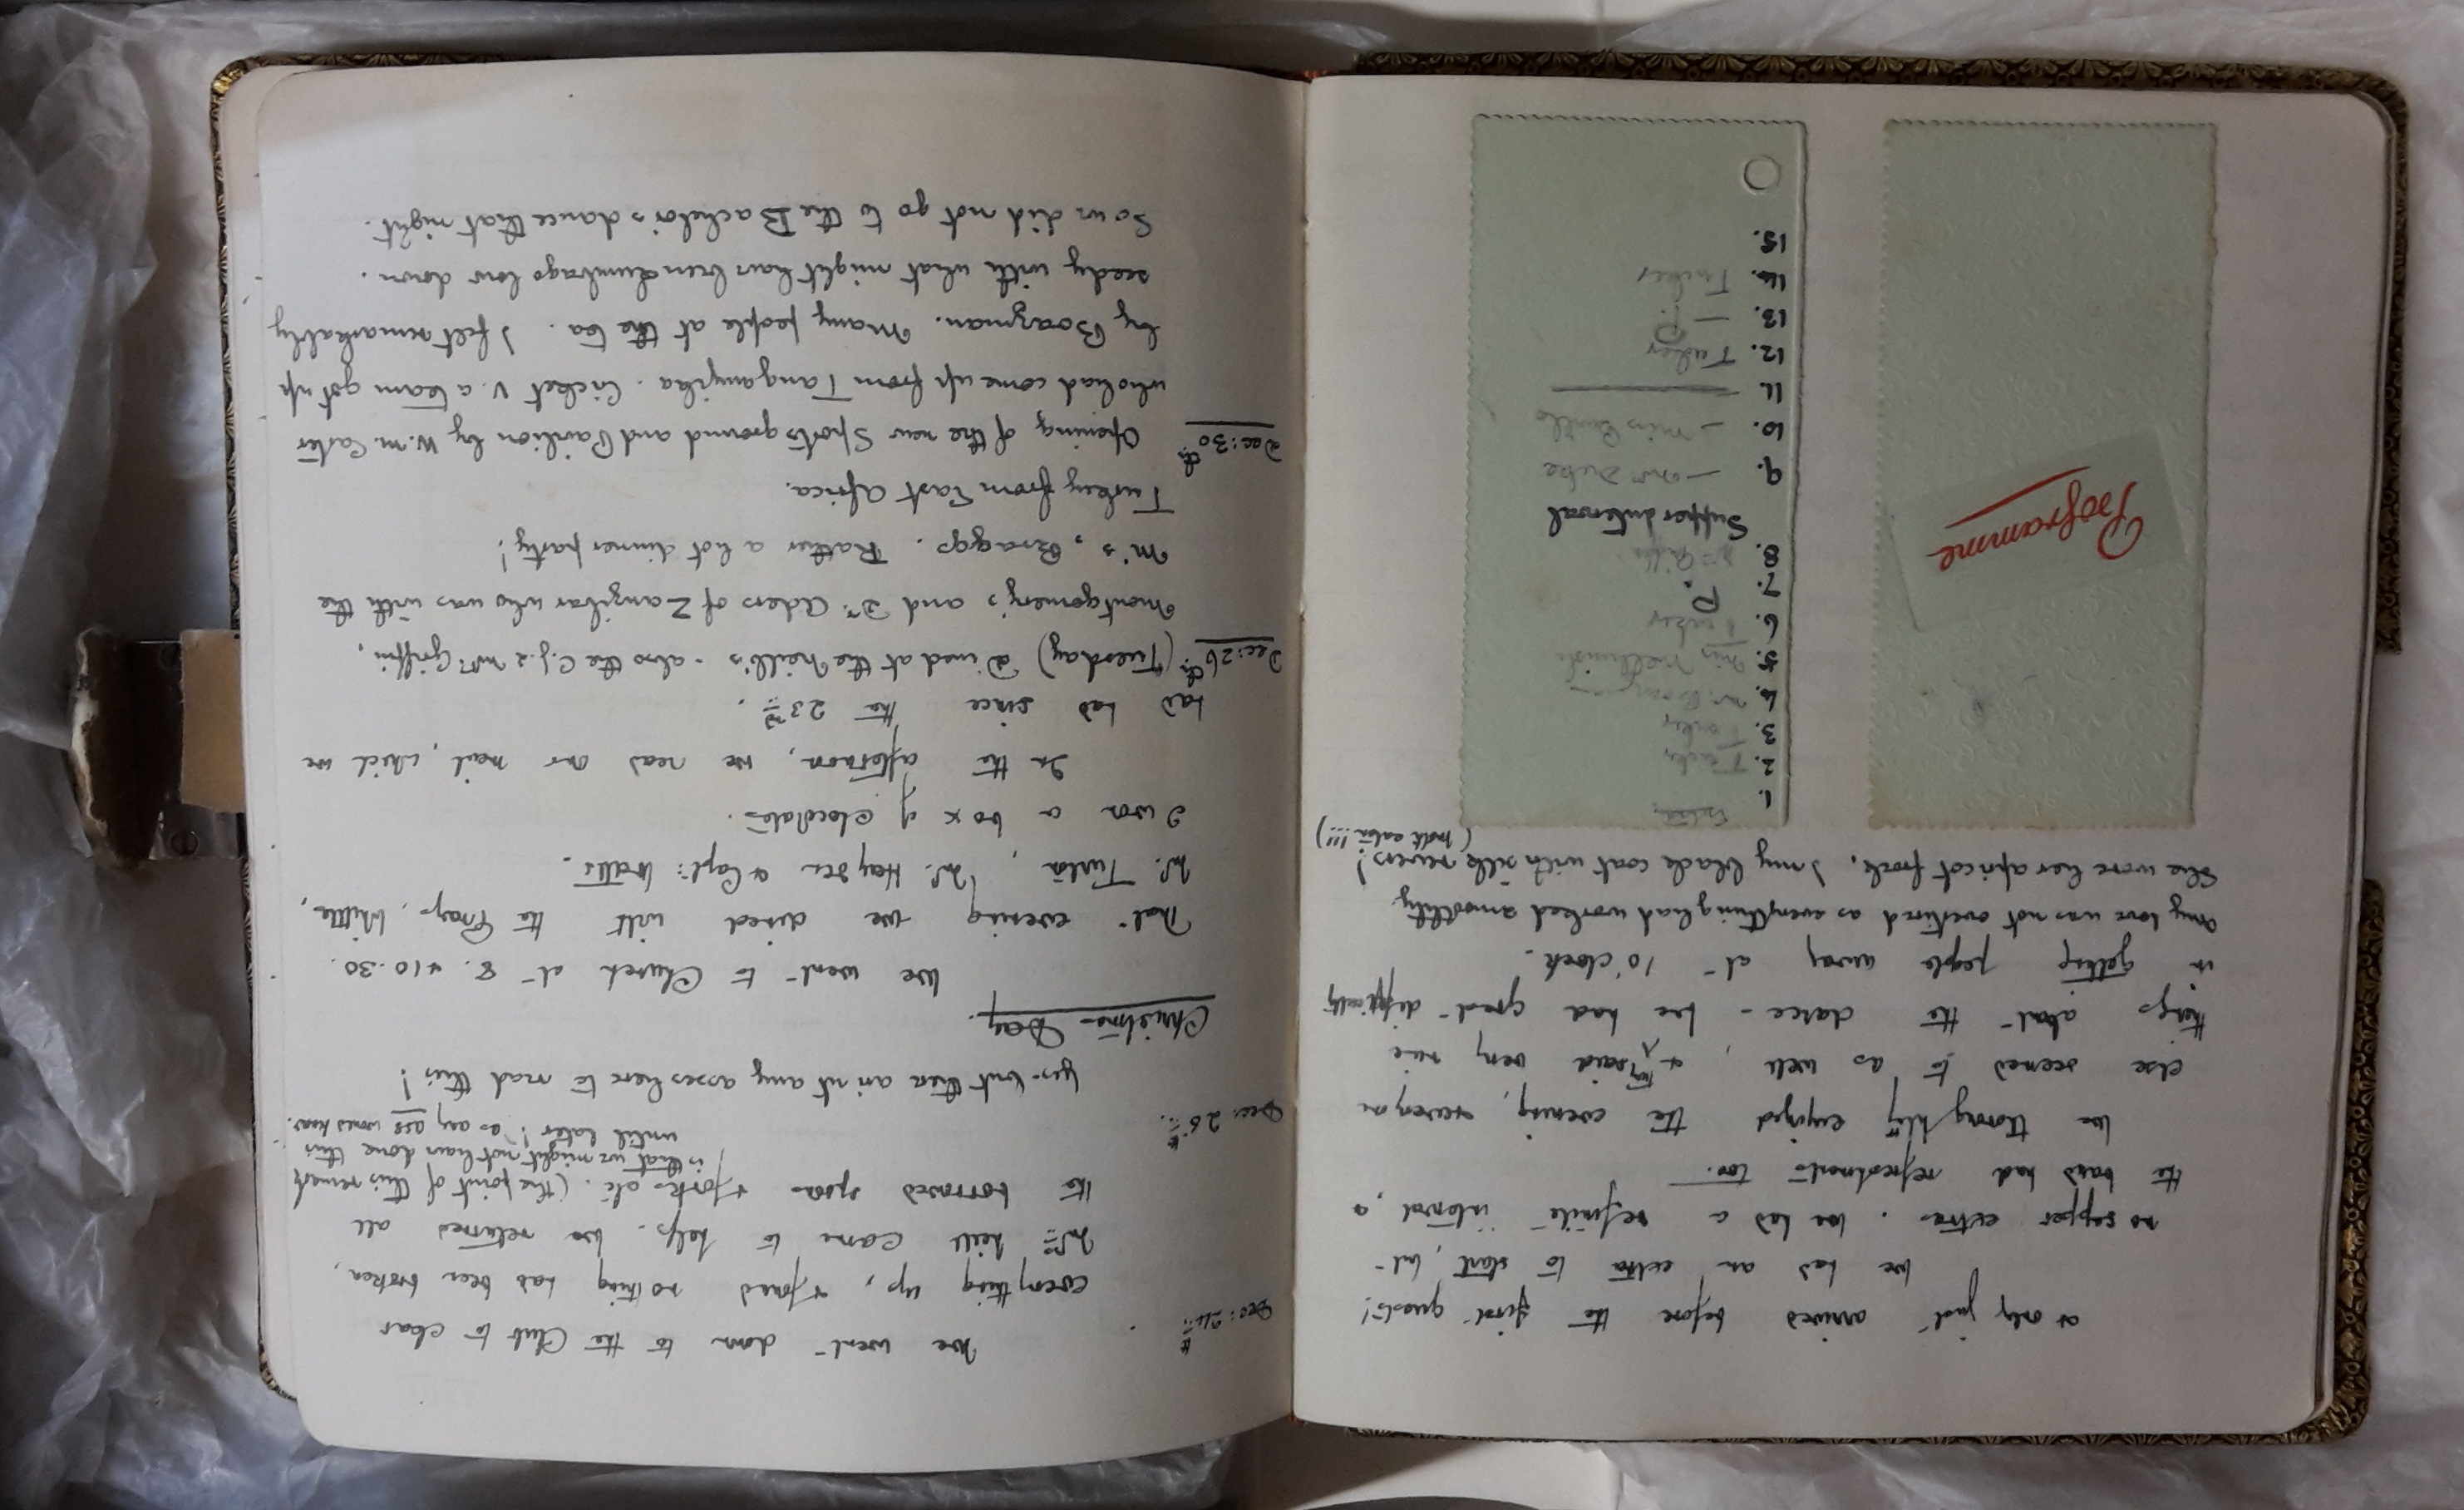 & only just arrived before the first guests!
We had an extra to start, but
no supper extras. We had a definite interval, &
the band had refreshments too.
We thoroughly enjoyed the evening, everyone
else seemed to as well, & they said very nice
things about the dance - we had great difficulty
in getting people away at 10 o'clock.
My love was not overtired as everything had worked smoothly.
She wore her apricot frock, I my black coat with silk revers!
(moth eaten!!!)
Programme
extra
1.
2. Tucker
3. Tucker
4.
5. Miss
6. Tucker
7. P.
8.
Supper interval
9. — Mrs Duke
10. — Miss
11.
12. Tucker
13. — P.
14. Tucker
15.
Dec: 24th
We went down to the Club to clear
everything up, & found nothing had been broken,
Mrs Neill came to help. We returned all
the borrowed spoons & forks etc. (the point of this remark
is that we might not have done this
until later! as any ass would know.
Dec: 25th
Yes - but there aren't any asses here to read this!
Christmas Day.
We went to Church at 8. & 10.30.
That evening we dined with the Frays, Whittle,
Mr. Turton, Mr. Hayden & Capt: Watts.
I won a box of chocolates.
In the afternoon, we read our mail, which we
had had since the 23rd.
Dec: 26th (Tuesday) Dined at the Neill's - also the C.J. & Mrs Griffin,
Montgomery's and Dr. Aders of Zanzibar who was with the
M's, Braggs. Rather a hot dinner party!
Turkey from East Africa.
Dec: 30th Opening of the new Sports ground and Pavilion by W.M. Carter
who had come up from Tanganyika. Cricket v. a team got up
by Boazman. Many people at the tea. I felt remarkably
seedy with what might have been lumbago low down.
So we did not go to the Bachelor's dance that night.